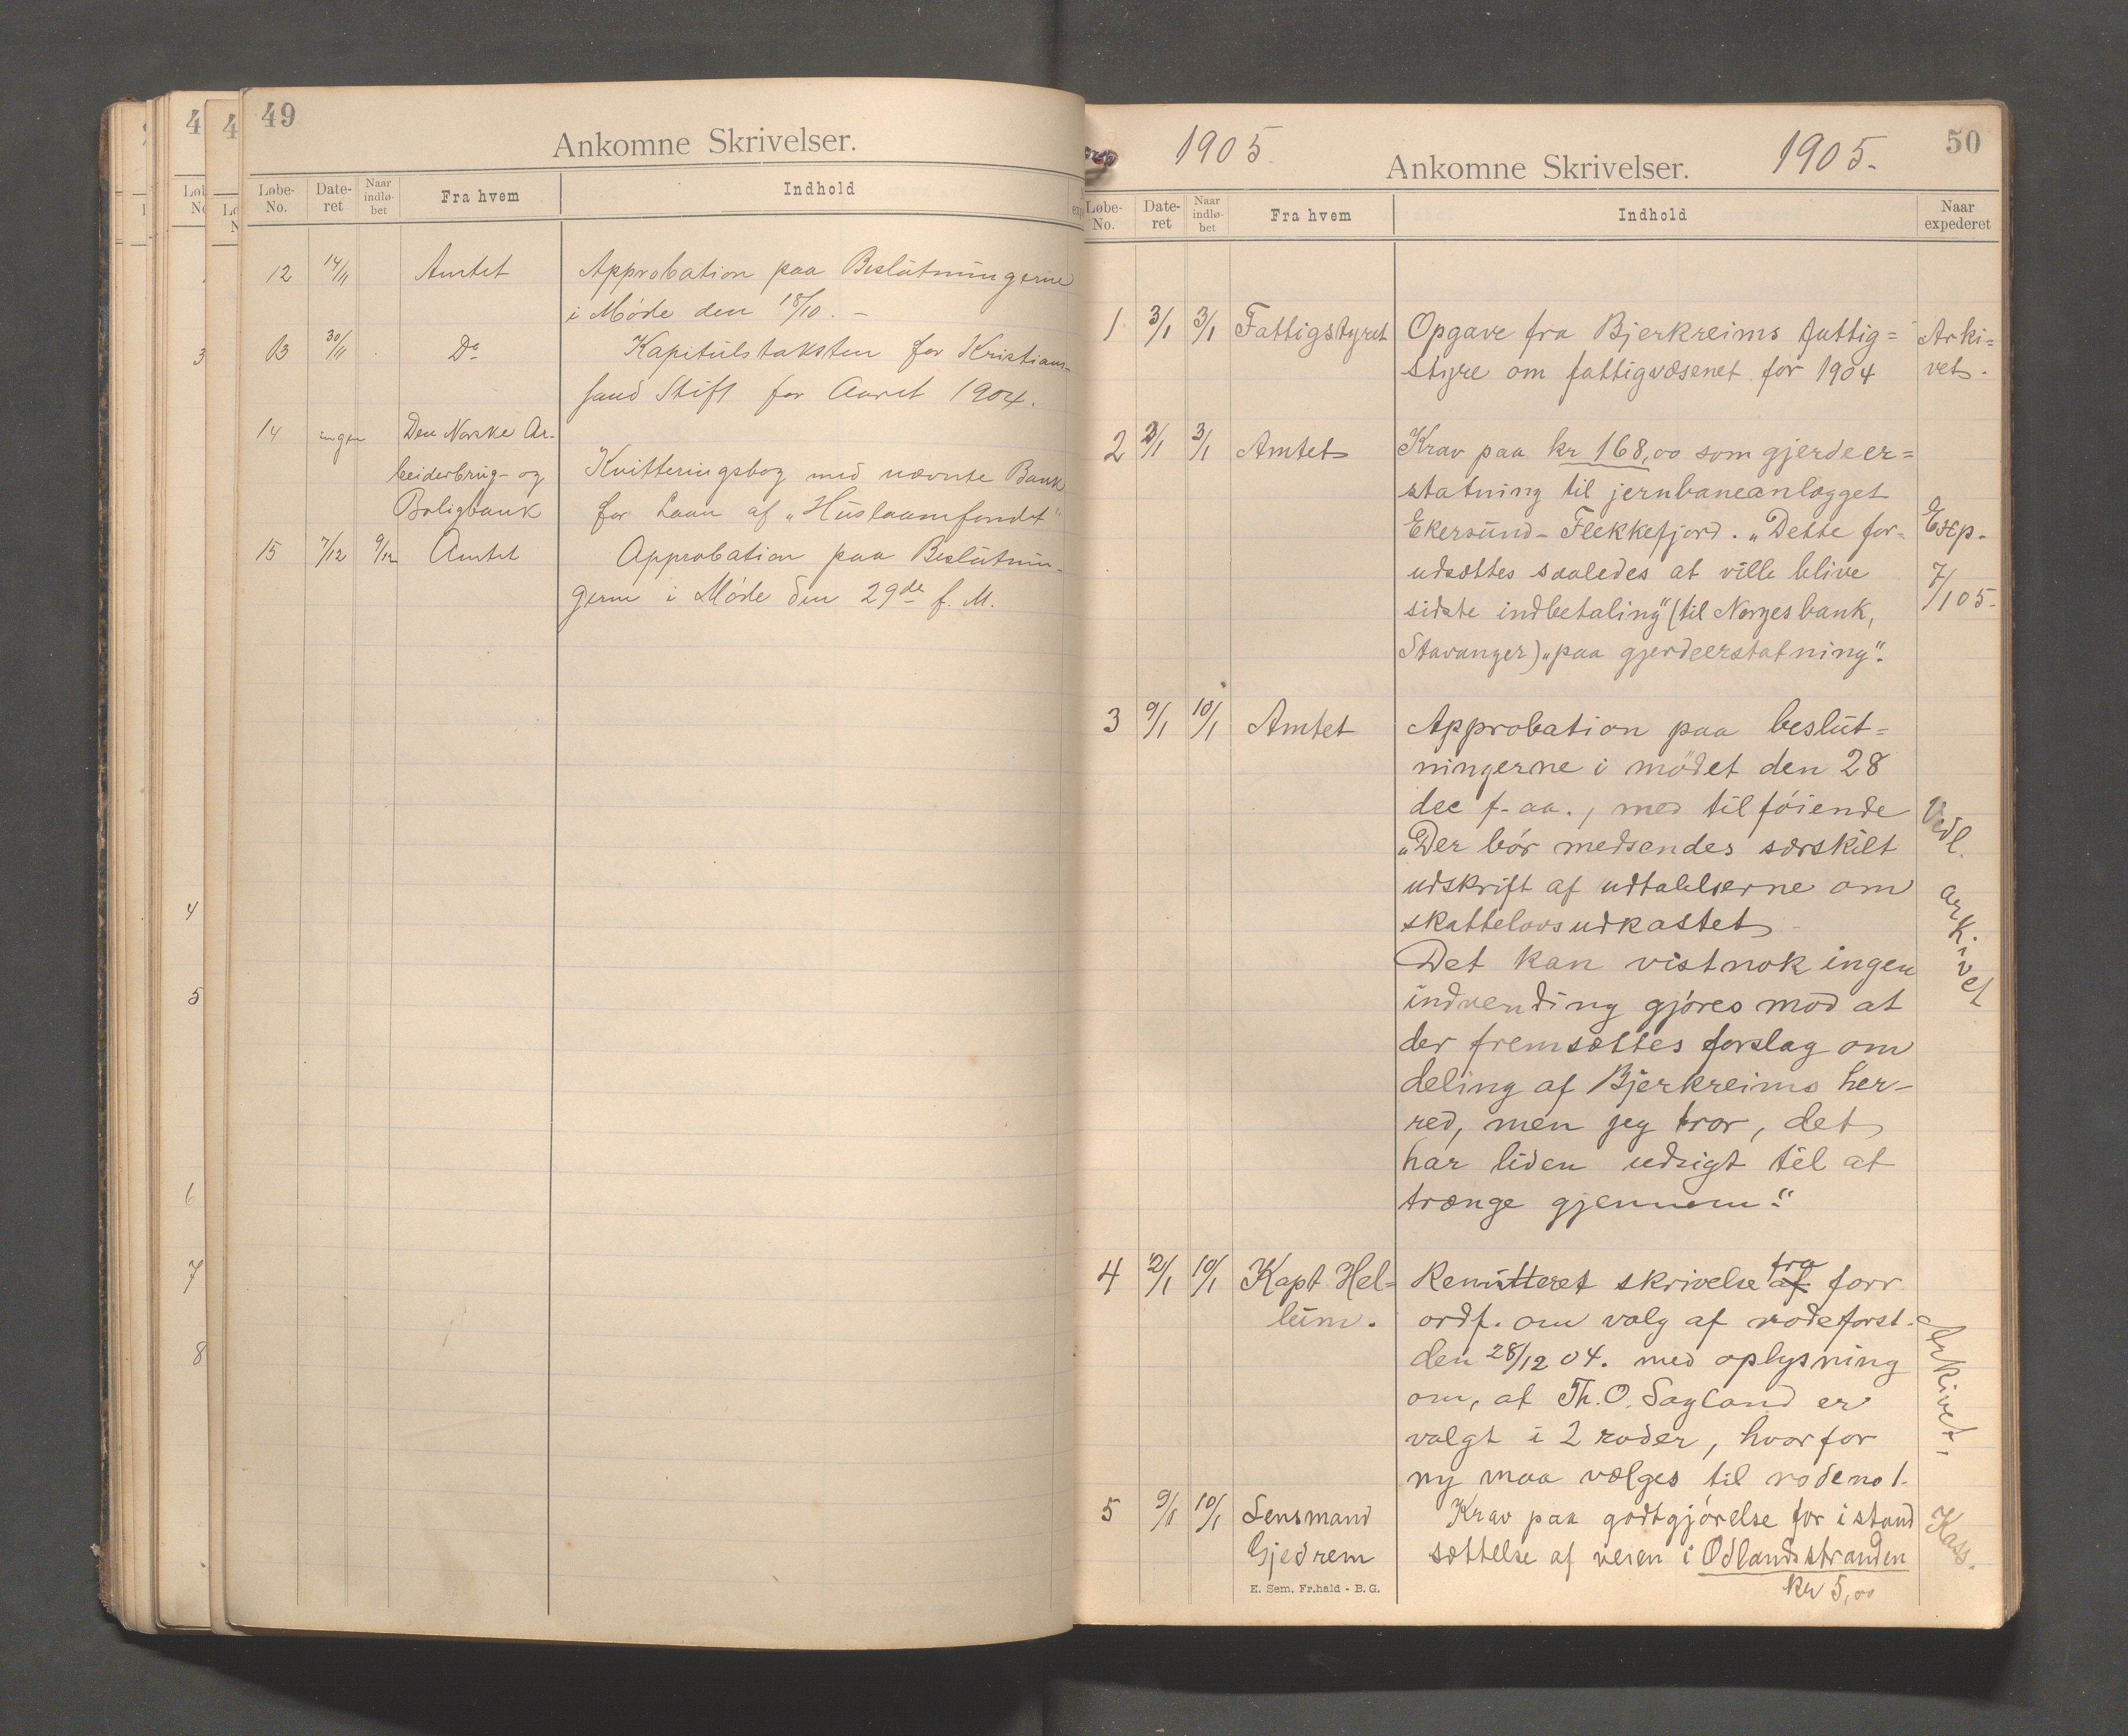 49
Ankomne Skrivelser.
Løbe-No. Date-ret Naar indlø-bet Fra hvem Indhold
12 14/11 Amtet Approbation paa Beslutningerne
i Møde den 18/10. –
13 30/11 Do Kapitulstaksten for Kristian-
sand Stift for Aaret 1904.
14 ingen Den Norske Ar-
beiderbrug- og Kvitteringsbog med nævnte Bank
Boligbank for Laan af „Huslaanfondet"
15 7/12 9/12 Amtet Approbation paa Beslutnin-
gerne i Møde den 29de f. M.
3
4
5
6
7
8
1905. 1905. 50
Ankomne Skrivelser.
Løbe-No. Date-ret Naar indlø-bet Fra hvem Indhold Naar expederet
1 3/1 3/1 Fattigstyret Opgave fra Bjerkreims fattig= Arki=
styre om fattigvæsenet for 1904 vet.
2 2/1 3/1 Amtet Krav paa kr 168,00 som gjerdeer=
statning til jernbaneanlægget
Ekersund – Flekkefjord. „Dette for- Exp.
udsættes saaledes at ville blive 7/1 05.
sidste indbetaling" (til Norges bank,
Stavanger) „paa gjerdeerstatning".
3 9/1 10/1 Amtet Approbation paa beslut=
ningerne i mødet den 28
dec f. aa., med tilføiende Vedl. arkivet
„Der bør medsendes særskilt
udskrift af udtalelserne om
skattelovsudkastet
Det kan vistnok ingen
indvending gjøres mod at
der fremsættes forslag om
deling af Bjerkreims her-
red, men jeg tror, det
har liden udsigt til at
trænge gjennem."
4 2/1 10/1 Kapt. Hel= Remitteret skrivelse af fra forr
lum. ordf. om valg af rodeforst. Arkivet.
den 28/12 04. med oplysning
om, at Th. O. Sagland er
valgt i 2 roder, hvorfor
ny maa vælges til rode no 1.
5 9/1 10/1 Lensmand Krav paa godtgjørelse for istand Kass.
Gjedrem sættelse af veien i Ødlandsstranden
kr 5,00
E. Sem, Fr.hald - B. G.